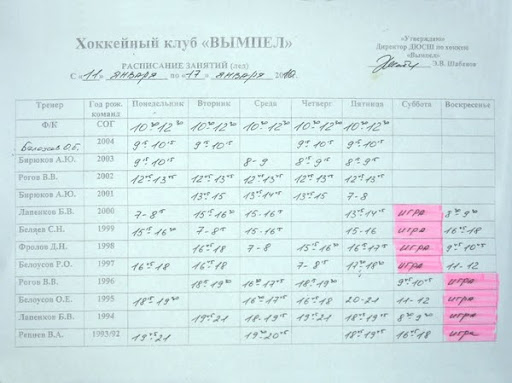 Хоккейный клуб «ВЫМПЕЛ»
«Утверждаю»
Директор ДЮСШ по хоккею
«Вымпел»
Э.В. Шабанов
РАСПИСАНИЕ ЗАНЯТИЙ (лед)
С «11» января по «17» января 2010.
Тренер Год рож. команд Понедельник Вторник Среда Четверг Пятница Суббота Воскресенье
Ф/К СОГ 10³⁰-12³⁰ 10³⁰-12³⁰ 10³⁰-12³⁰ 10³⁰-12³⁰ 10³⁰-12³⁰
Белоусов О.Е. 2004 9¹⁵-10¹⁵ 9¹⁵-10¹⁵ 9¹⁵-10¹⁵ 9¹⁵-10¹⁵
Бирюков А.Ю. 2003 9¹⁵-10¹⁵ 8-9 8¹⁵-9¹⁵ 8¹⁵-9¹⁵
Рогов В.В. 2002 12¹⁵-13¹⁵ 12¹⁵-13¹⁵ 12¹⁵-13¹⁵ 12¹⁵-13¹⁵ 12¹⁵-13¹⁵
Бирюков А.Ю. 2001 13¹⁵-15 13¹⁵-14¹⁵ 13¹⁵-15 7-8
Лапенков Б.В. 2000 7-8¹⁵ 15¹⁵-16³⁰ 15-16¹⁵ 13¹⁵-14¹⁵ игра 8³⁰-9³⁰
Беляев С.Н. 1999 15¹⁵-16³⁰ 7-8¹⁵ 15-16¹⁵ 15-16 игра 16¹⁵-18
Фролов Д.Н. 1998 16⁴⁵-18 7-8 15¹⁵-16³⁰ 16¹⁵-17¹⁵ игра 9¹⁵-10¹⁵
Белоусов Р.О. 1997 16⁴⁵-18 16⁴⁵-18 7-8¹⁵ игра 11-12
Рогов В.В. 1996 18¹⁵-19³⁰ 16³⁰-17⁴⁵ 18¹⁵-19³⁰ 9¹⁵-10¹⁵ игра
Белоусов О.Е. 1995 18¹⁵-19³⁰ 16³⁰-17⁴⁵ 16⁴⁵-18 20-21 11-12 игра
Лапенков Б.В. 1994 19⁴⁵-21 18-19¹⁵ 19⁴⁵-21 18¹⁵-19¹⁵ 8³⁰-9³⁰ игра
Репнев В.А. 1993/92 19⁴⁵-21 19³⁰-20⁴⁵ 18¹⁵-19¹⁵ 16¹⁵-18 игра